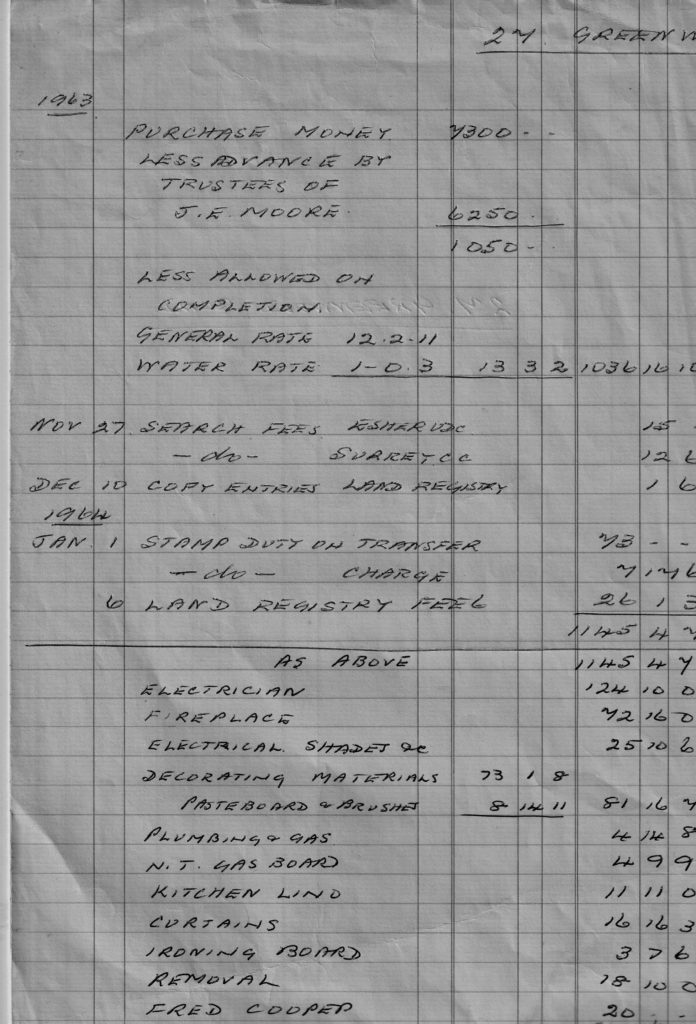 27. GREEN
1963
PURCHASE MONEY 7300 - -
LESS ADVANCE BY
TRUSTEES OF
J.E. MOORE. 6250 -
1050 - -
LESS ALLOWED ON
COMPLETION.
GENERAL RATE 12.2.11
WATER RATE 1-0.3 13 3 2 1036 16 10
NOV 27 SEARCH FEES ESHER UDC 15 -
-do- SURREY CC 12 6
DEC 10 COPY ENTRIES LAND REGISTRY 1 6
1964
JAN. 1 STAMP DUTY ON TRANSFER 73 - -
-do- CHARGE 7 17 6
6 LAND REGISTRY FEES 26 1 3
1145 4 7
AS ABOVE 1145 4 7
ELECTRICIAN 124 10 0
FIREPLACE 72 16 0
ELECTRICAL SHADES &C 25 10 6
DECORATING MATERIALS 73 1 8
PASTEBOARD & BRUSHES 8 14 11 81 16 7
PLUMBING & GAS 4 14 8
N.T. GAS BOARD 4 9 9
KITCHEN LINO 11 11 0
CURTAINS 16 16 3
IRONING BOARD 3 7 6
REMOVAL 18 10 0
FRED COOPER 20 - -